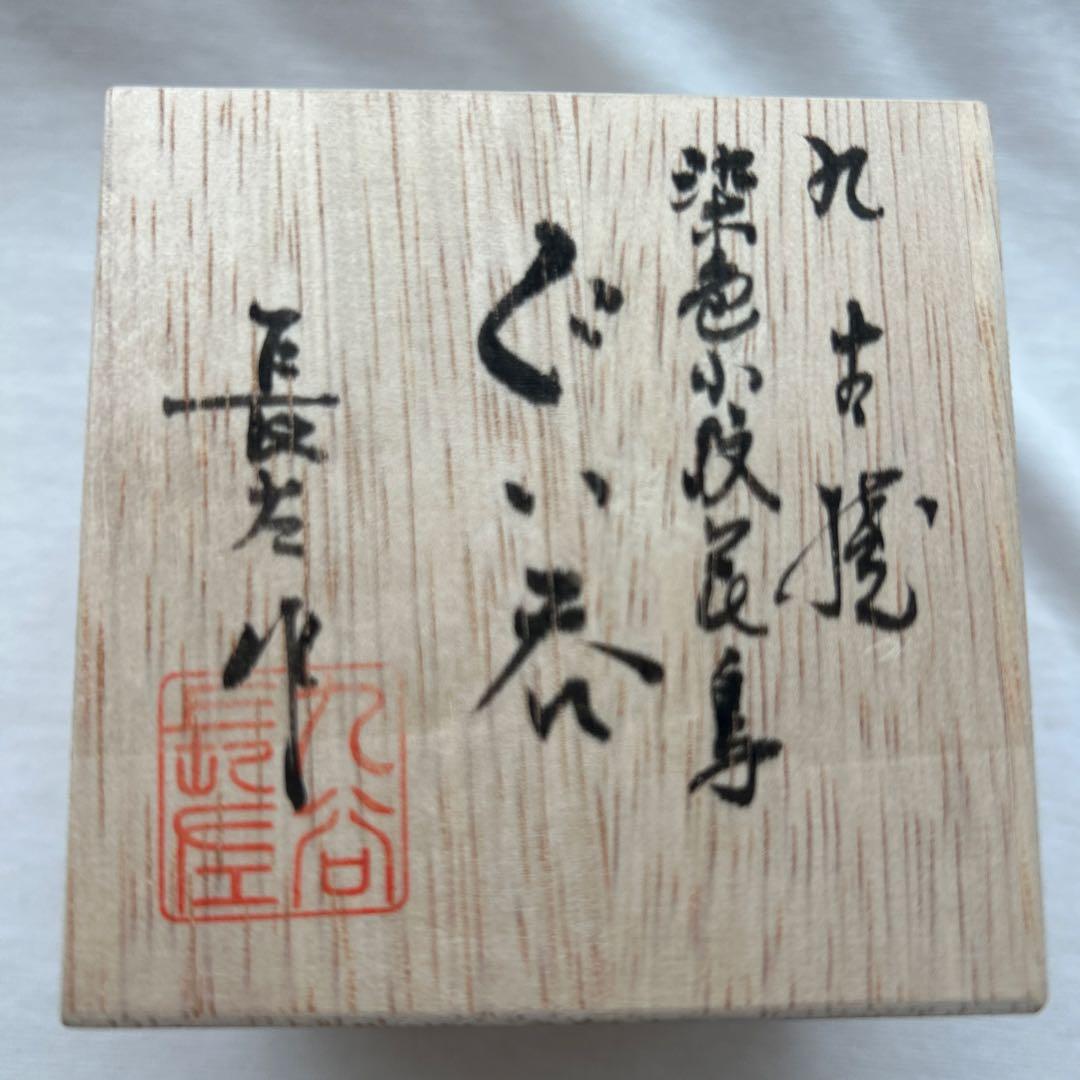 九谷焼
染色小紋花鳥
ぐい呑
長左作
九谷
長左